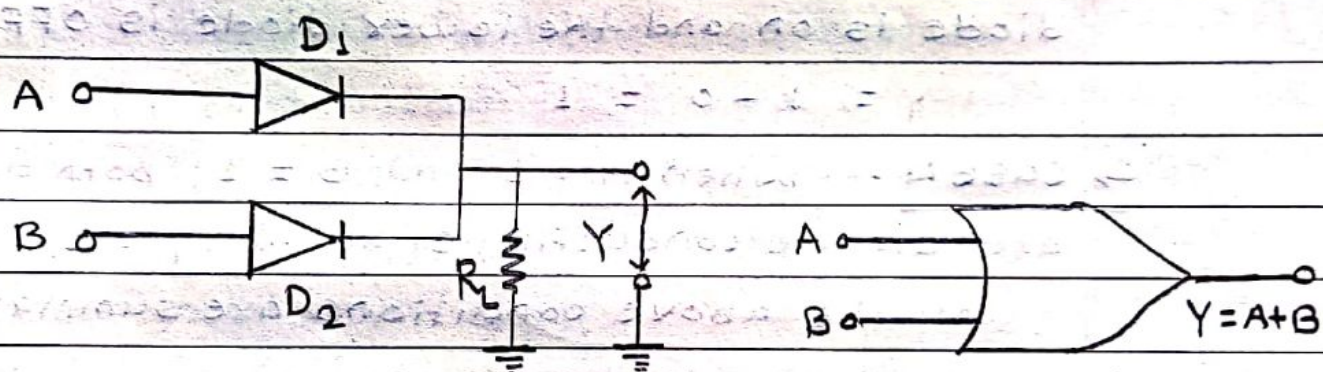 D1
A
B
D2
RL
Y
A
B
Y=A+B